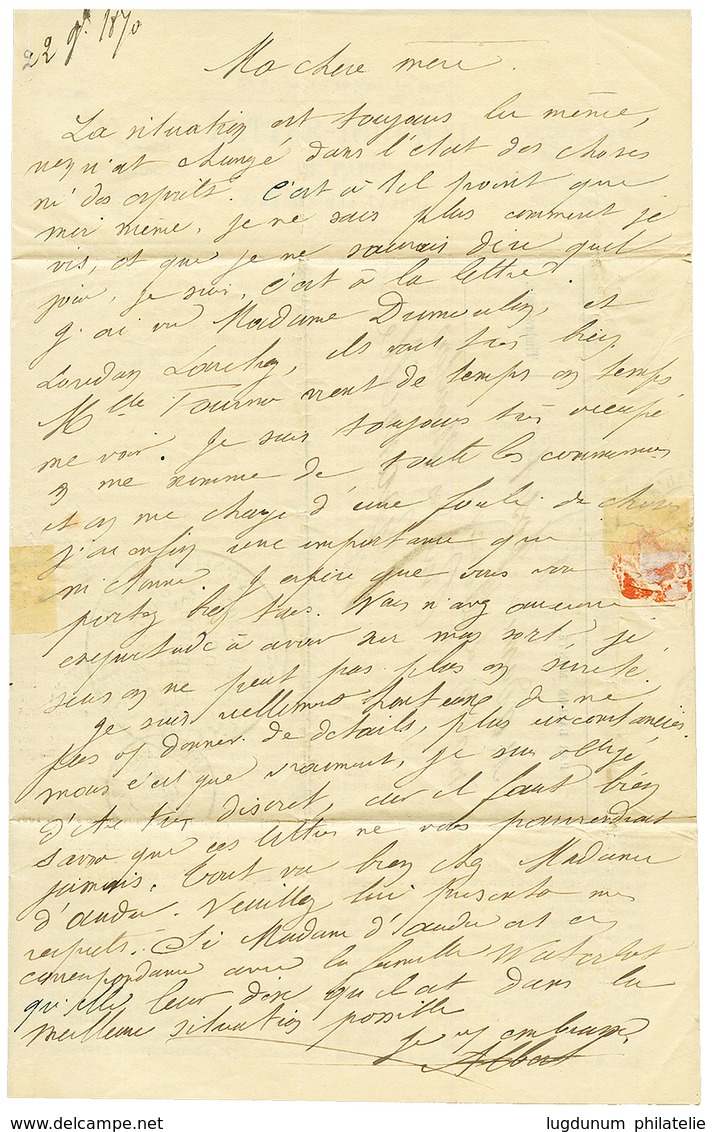 22 9bre 1870
Ma chère mère.
La situation est toujours la même,
rien n'est changé dans l'état des choses
ni des esprits. C'est à tel point que
moi même, je ne sais plus comment je
vis, et que je ne saurais dire quel
jour, je suis, c'est à la lettre.
J'ai vu Madame Dumoulin, et
Loredan Larchey, ils vont très bien.
Mlle Tourno vient de temps en temps
me voir. Je suis toujours très occupé
me nomme de toute les commissions
et on me charge d'une foule de choses
j'ai enfin une importance qui
m'étonne. J'espère que vous vous
portez tres tous. Vous n'avez aucune
inquietude à avoir sur mon sort, je
suis on ne peut pas plus en sureté.
Je suis réellement honteux de ne
pas vs donner de details, plus circonstanciés
mais c'est que vraiment, je suis obligé
d'être très discret, car il faut bien
savoir que ces lettres ne vous parviendrait
jamais. Tout va bien chez Madame
d'Audu. Veuillez lui presenter mes
respects. Si Madame d'Audu est en
correspondance avec la famille Waterlot
qu'elle leur dise qu'il est dans la
meilleure situation possible
Je vs embrasse,
Albert
lugdunum philatelie
www.delcampe.net